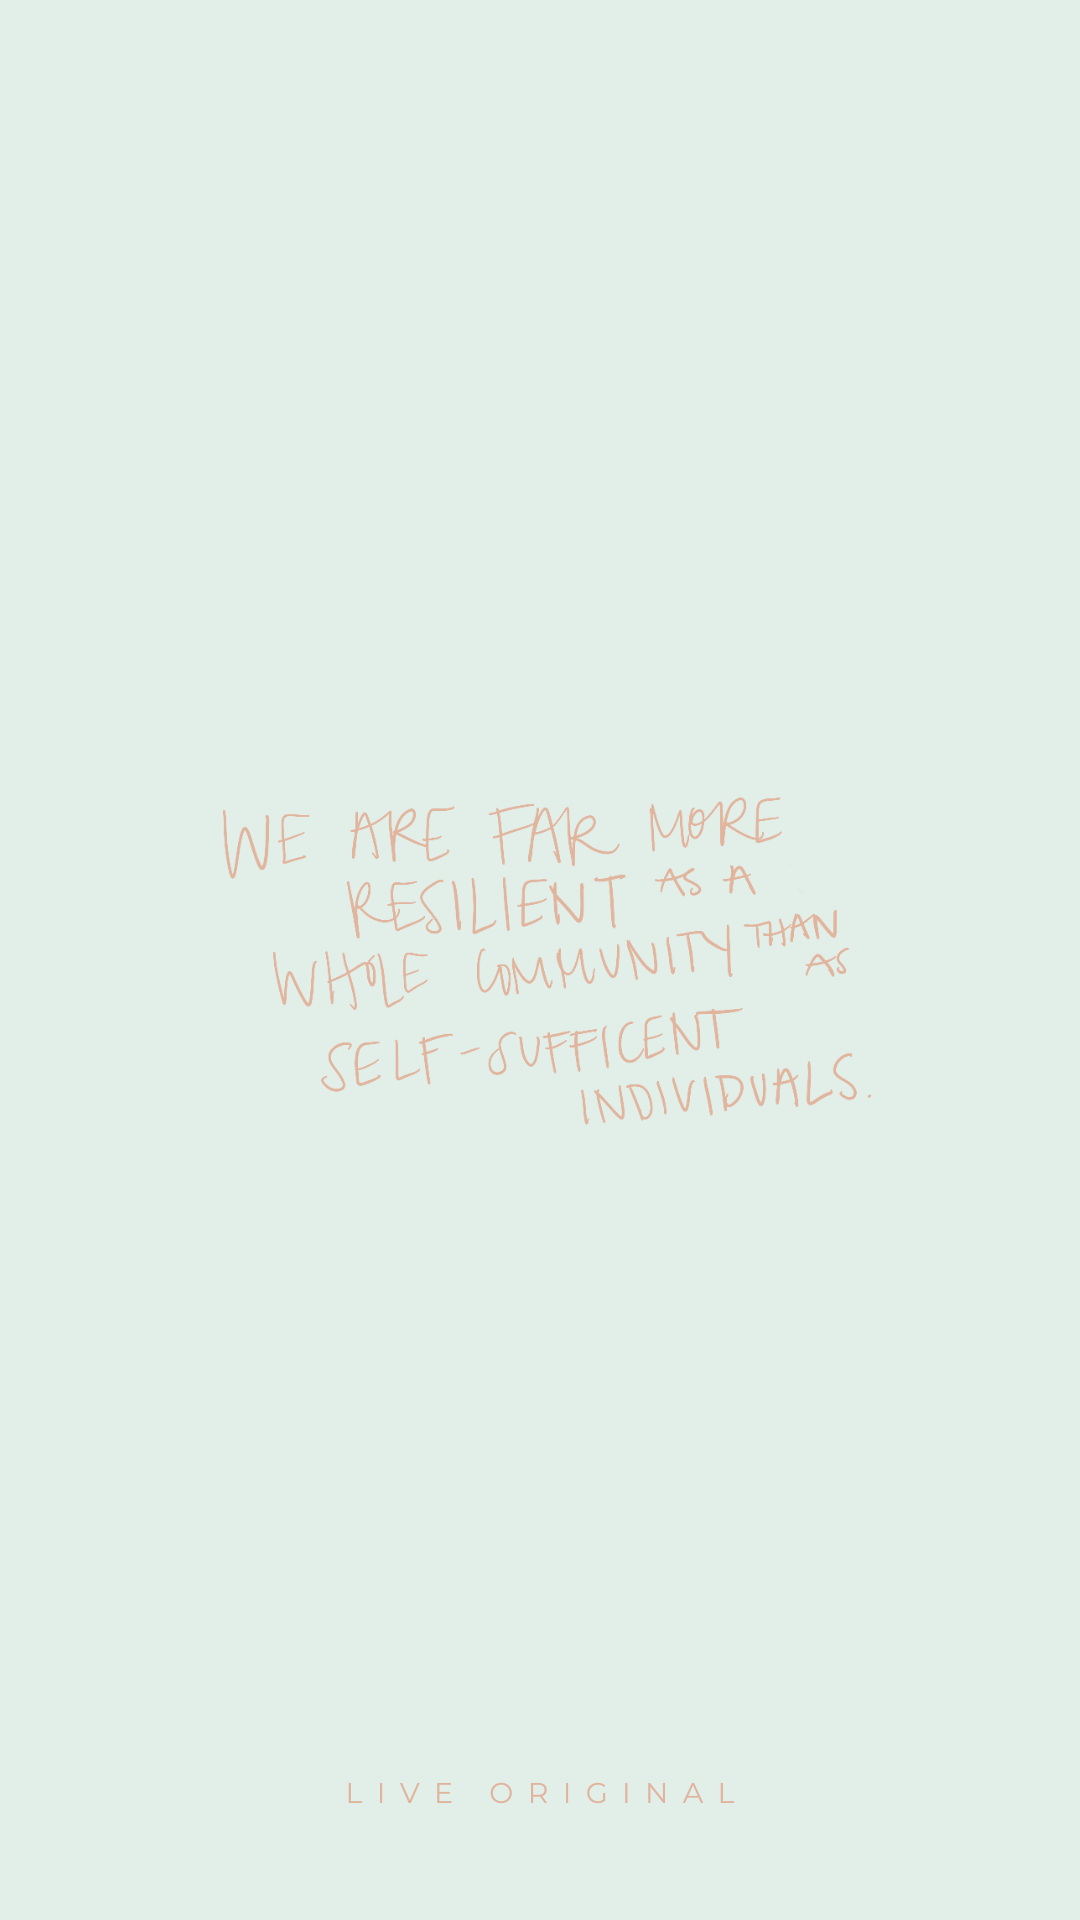 WE ARE FAR MORE
RESILIENT AS A
WHOLE COMMUNITY THAN
AS
SELF-SUFFICENT
INDIVIDUALS.
LIVE ORIGINAL